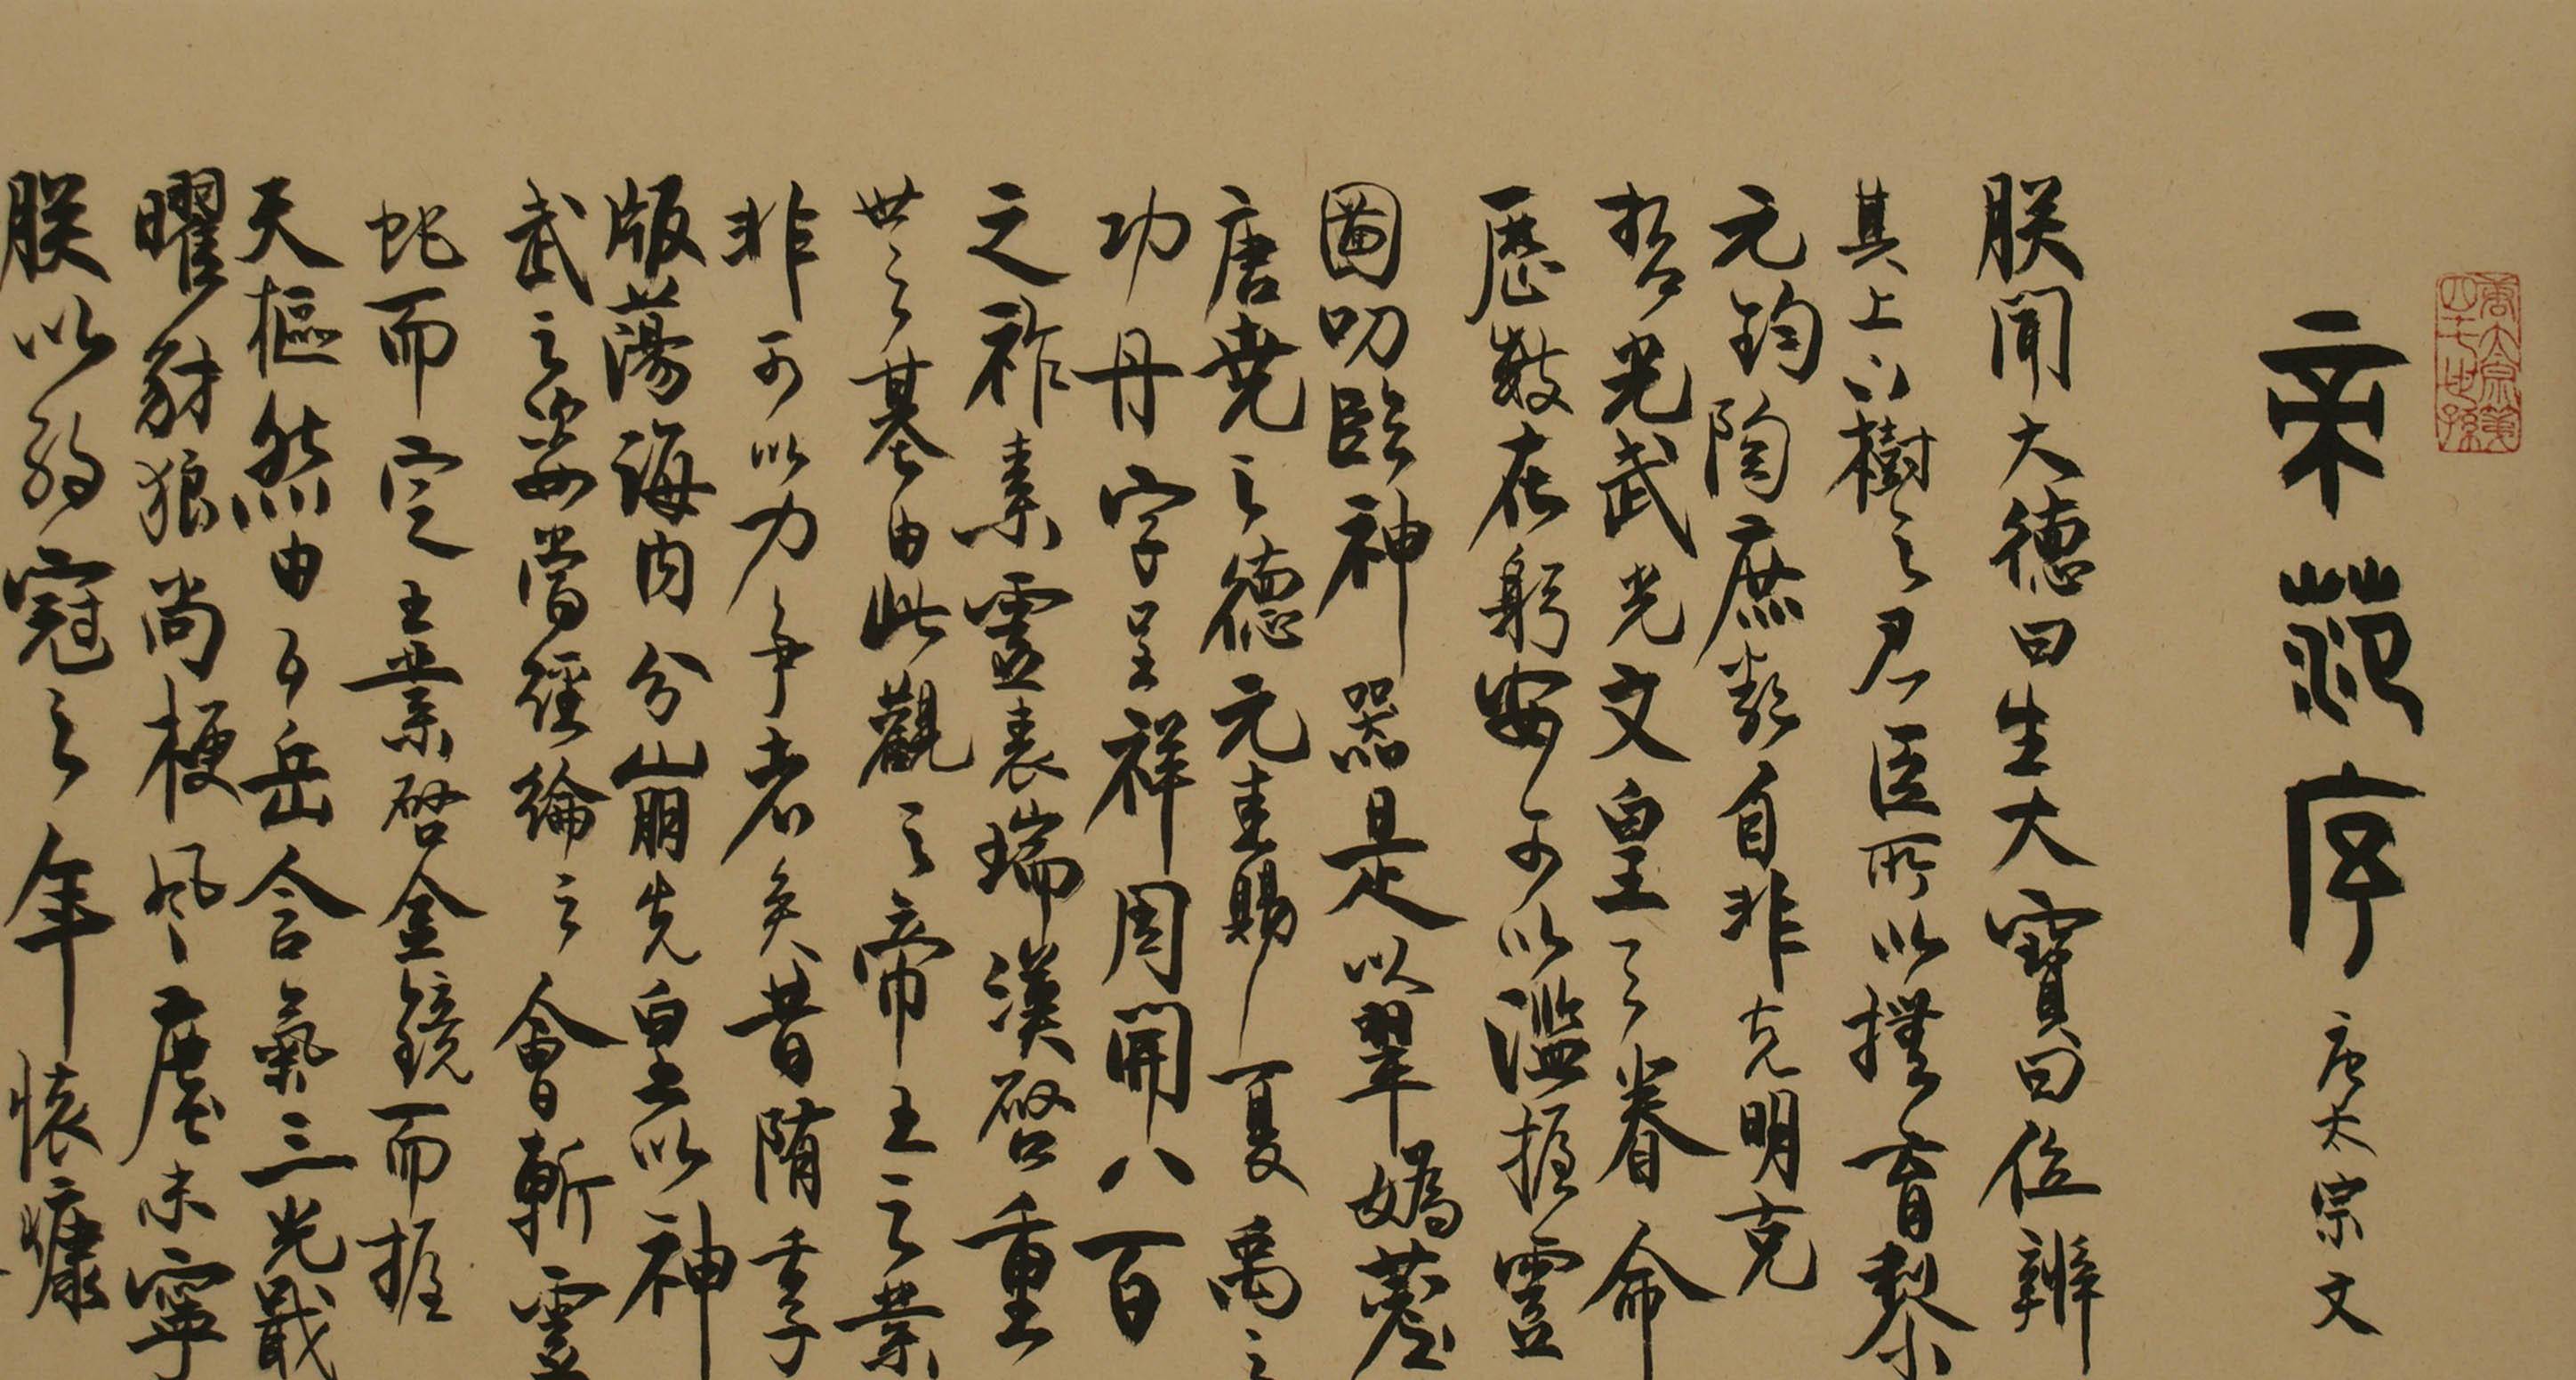 帝範序 唐太宗文
朕聞大德曰生大寶曰位辨
其上下樹之君臣所以撫育黎
元鈞陶庶類自非克明克
哲允武允文皇天眷命
歷數在躬安可以濫握靈
圖叨臨神器是以翠媯薦
唐堯之德元圭賜夏禹之
功丹字呈祥周開八百
之祚素靈表瑞漢啓重
世之基由此觀之帝王之業
非可以力爭者矣昔隋季
版蕩海内分崩先皇以神
武之姿當經綸之會斬靈
蛇而定王業啓金鏡而握
天樞然由五岳含氣三光戢
曜豺狼尚梗風塵未寧
朕以弱冠之年懷慷